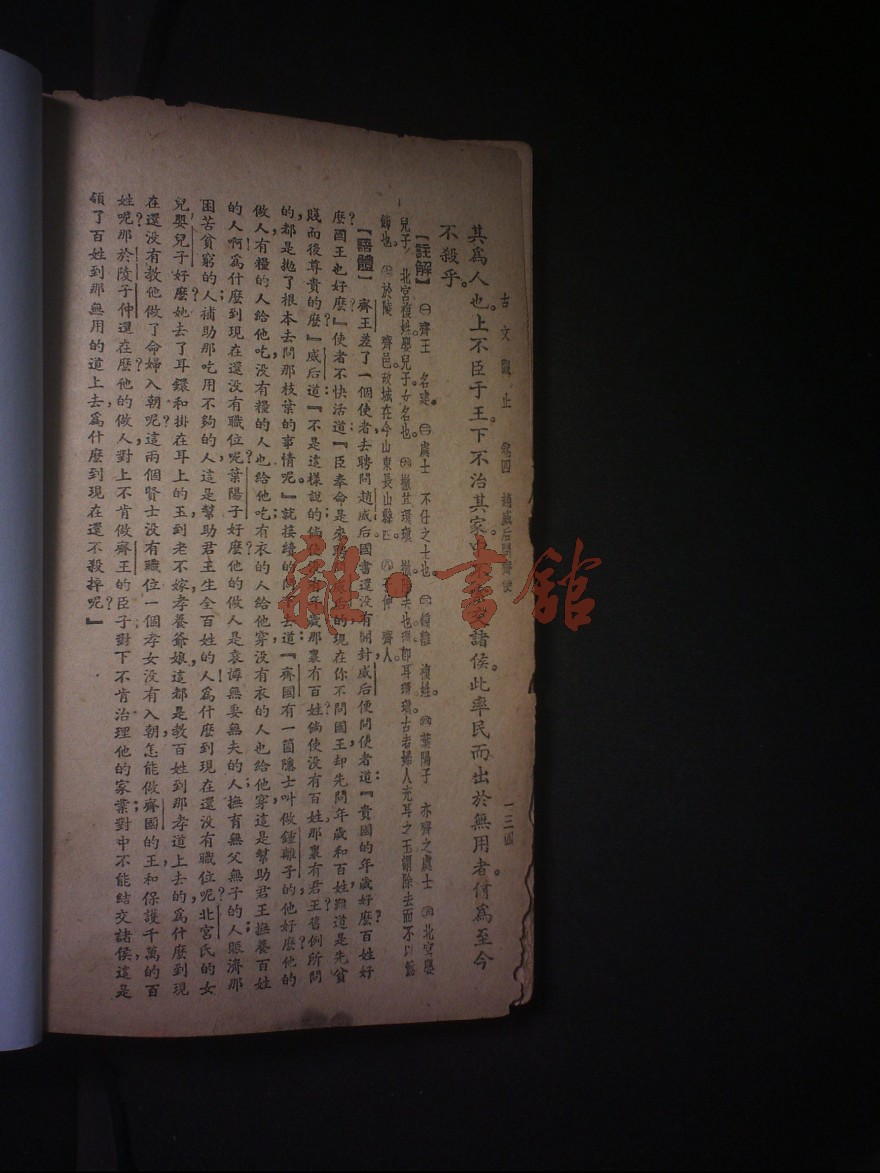 古文觀止 卷四 趙威后問齊使 一三四
其爲人也。上不臣于王。下不治其家。中不索交諸侯。此率民而出於無用者。何爲至今
不殺乎。
【註解】㊀齊王 名建。㊁處士 不仕之士也。㊂鍾離 複姓。㊃葉陽子 亦齊之處士。㊄北宮嬰
兒子 北宮複姓嬰兒子。女名也。㊅撤其環瑱 撤 去也。環卽耳環。瑱古者婦人充耳之玉謂除去而不以爲
飾也。㊆於陵 齊邑故城在今山東長山縣 子仲 齊人。
【語體】齊王差了一個使者去聘問趙威后國書還沒有開封威后便問使者道：『貴國的年歲好麼？百姓好
麼？國王也好麼？』使者不快活道：『臣奉命是來聘 后的，現在你不問國王，却先問年歲和百姓，難道是先貧
賤而後尊貴的麼？』威后道：『不是這樣說的倘使沒有年歲那裏有百姓？倘使沒有百姓，那裏有君王？舊例所問
的，都是拋了根本去問那枝葉的事情呢。』就接續的問下去道：『齊國有一箇隱士叫做鍾離子的，他好麼？他的
做人有糧的人給他吃，沒有糧的人也給他吃；有衣的人給他穿，沒有衣的人也給他穿，這是幫助君王撫養百姓
的人啊！爲什麼到現在還沒有職位呢？葉陽子好麼？他的做人是哀憐無妻無夫的人，撫育無父無子的人；賑濟那
困苦貧窮的人，補助那吃用不夠的人，這是幫助君主生全百姓的人！爲什麼到現在還沒有職位呢？北宮氏的女
兒嬰兒子好麼？她去了耳鐶和掛在耳上的玉，到老不嫁，孝養爺娘，這都是教百姓到那孝道上去的，爲什麼到現
在還沒有教他做了命婦入朝呢？這兩個賢士沒有職位，一個孝女沒有入朝，怎能做齊國的王，和保護千萬的百
姓呢？那於陵子仲還在麼？他的做人，對上不肯做齊王的臣子；對下不肯治理他的家業；對中不能結交諸侯，這是
領了百姓到那無用的道上去，爲什麼到現在還不殺掉呢？』
雜·書館